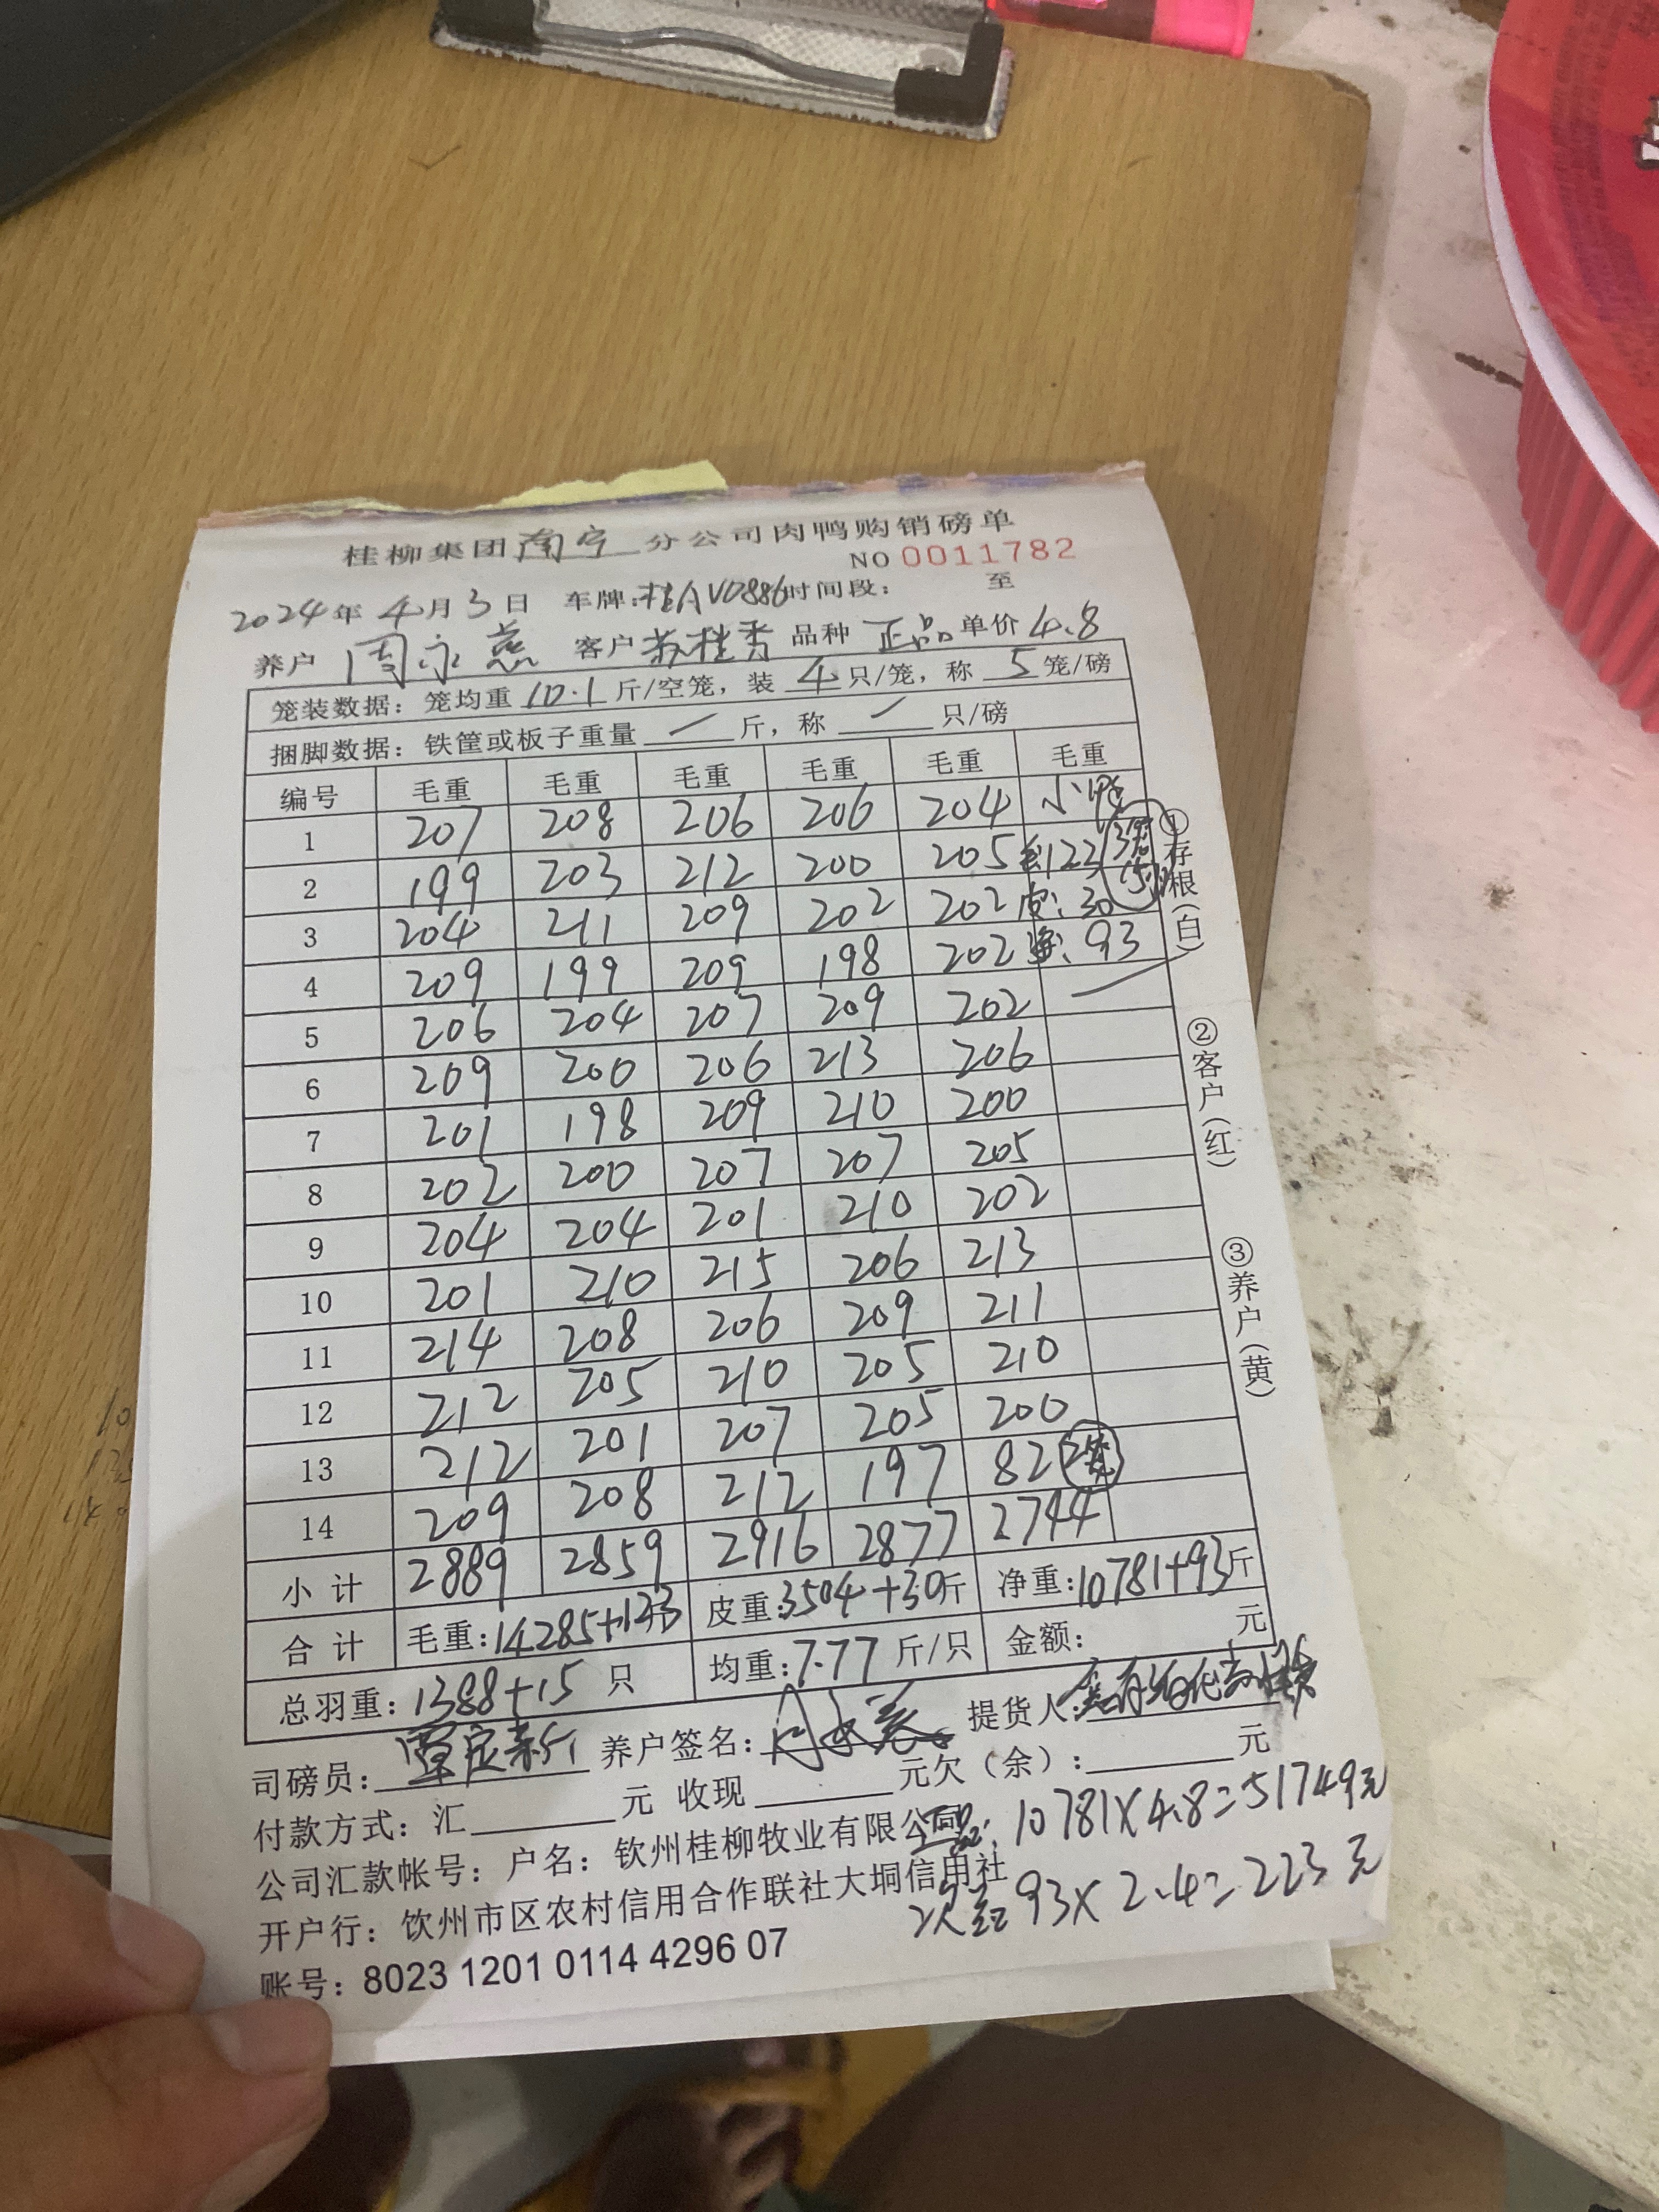 桂柳集团南宁分公司肉鸭购销磅单
NO 0011782
2024年4月3日 车牌:桂AV0886时间段: 至
养户 周永燕 客户 苏桂秀 品种 正品 单价4.8
笼装数据:笼均重 10.1 斤/空笼,装 4 只/笼,称 5 笼/磅
捆脚数据:铁筐或板子重量 — 斤,称 — 只/磅
编号 毛重 毛重 毛重 毛重 毛重 毛重
1 207 208 206 206 204
2 199 203 212 200 205 毛123 3笼
3 204 211 209 202 202 皮:30 15
4 209 199 209 198 202 净:93
5 206 204 207 209 202
6 209 200 206 213 206
7 201 198 209 210 200
8 202 200 207 207 205
9 204 204 201 210 202
10 201 210 215 206 213
11 214 208 206 209 211
12 212 205 210 205 210
13 212 201 207 205 200
14 209 208 212 197 82 2笼
小计 2889 2859 2916 2877 2744
合计 毛重:14285+123 皮重:3504+30斤 净重:10781+93斤
总羽重:1388+15 只 均重:7.77斤/只 金额: 元
司磅员: 养户签名: 提货人:
付款方式:汇 元 收现 元欠(余): 元
公司汇款帐号:户名:钦州桂柳牧业有限公司
正品:10781X4.8=51749元
开户行:钦州市区农村信用合作联社大垌信用社
93X2.4=223元
账号:8023 1201 0114 4296 07
①存根(白)
②客户(红)
③养户(黄)